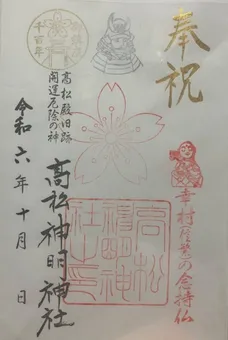 奉祝
幸村信繁の念持仏
高松殿旧跡
開運厄除の神
高松神明神社
高松
神明神
社之印
令和六年十月 日